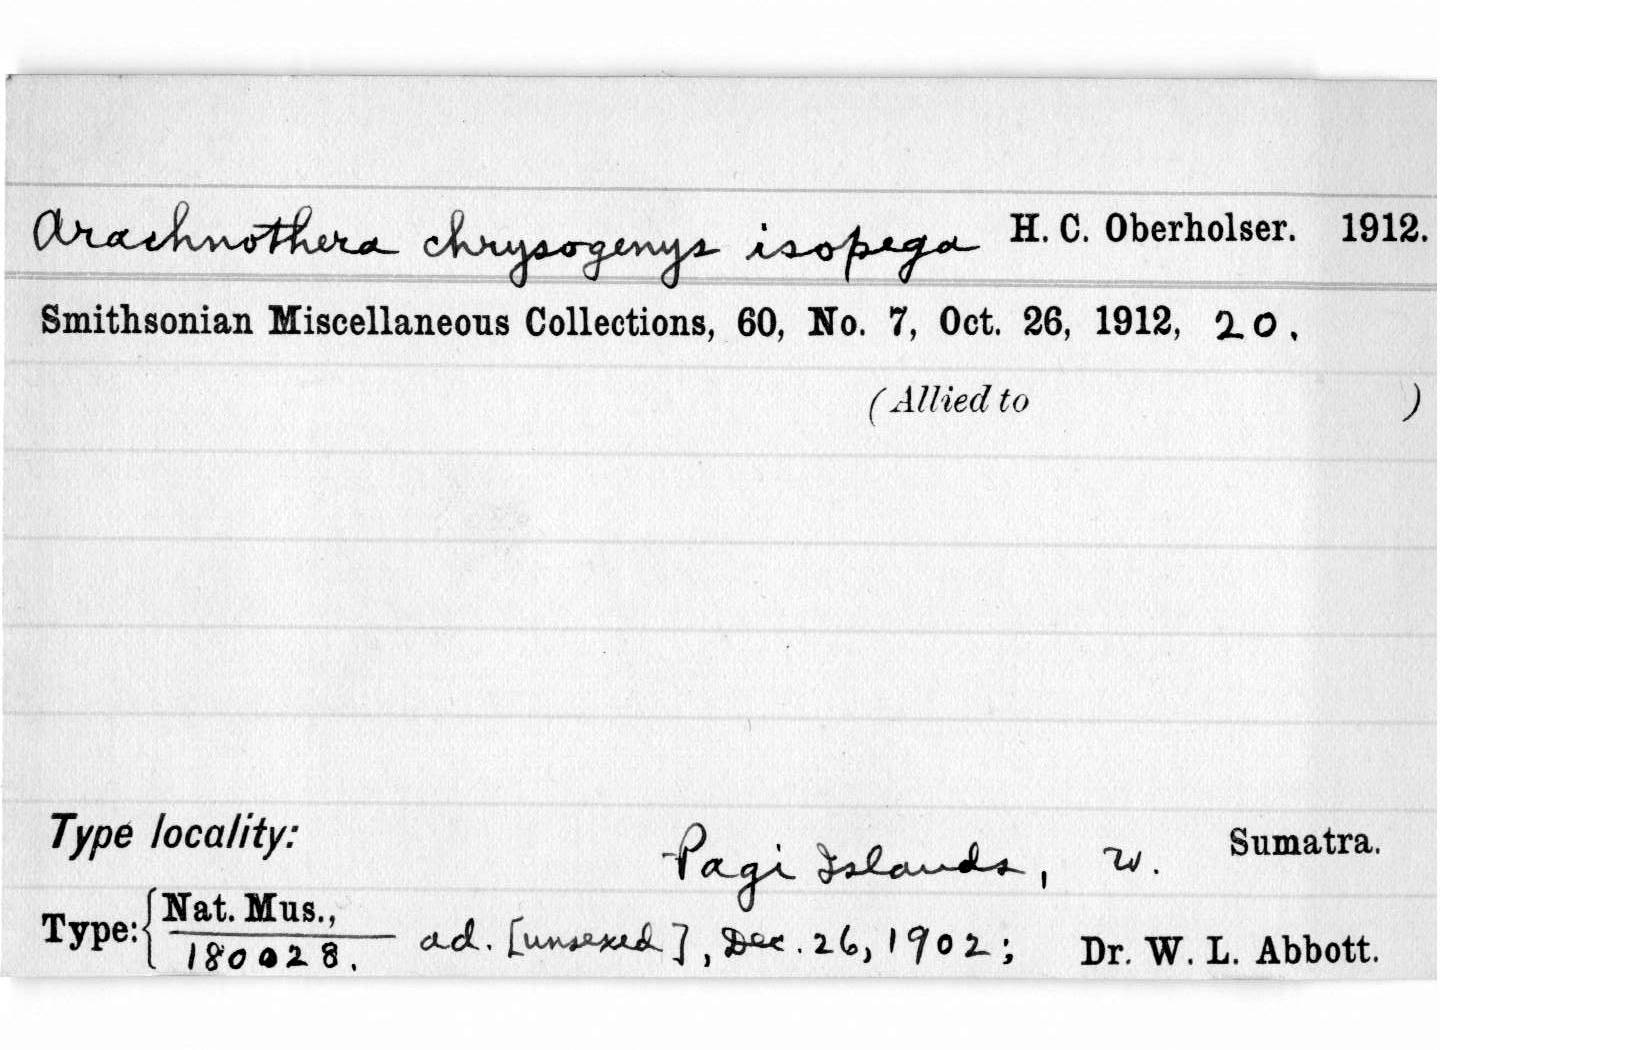 Arachnothera chrysogenys isopega H. C. Oberholser. 1912.
Smithsonian Miscellaneous Collections, 60, No. 7, Oct. 26, 1912, 20.
(Allied to )
Type locality: Pagi Islands, w. Sumatra.
Type: { Nat. Mus.,
180028. ad. [unsexed], Dec. 26, 1902; Dr. W. L. Abbott.